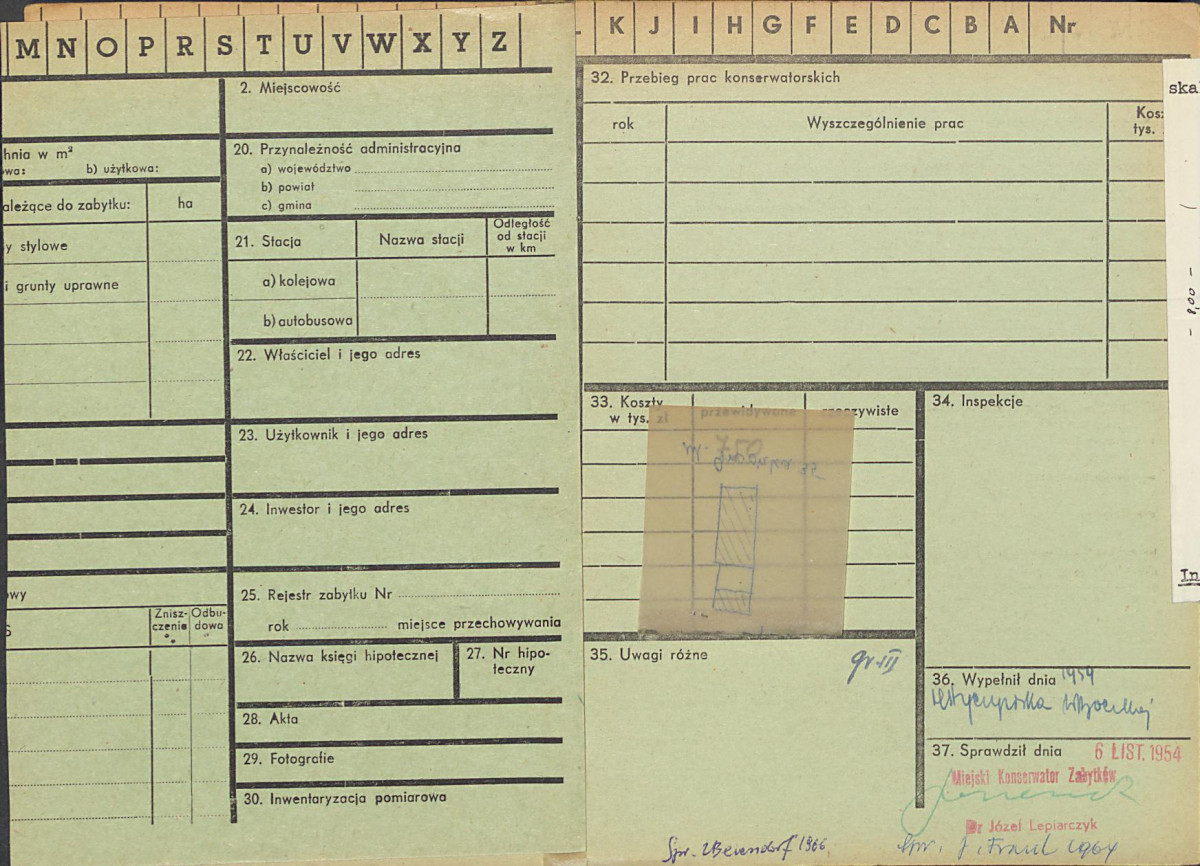 M N O P R S T U V W X Y Z
2. Miejscowość
hnia w m²
wa: b) użytkowa:
20. Przynależność administracyjna
a) województwo
b) powiat
c) gmina
ależące do zabytku: ha
y stylowe
i grunty uprawne
21. Stacja Nazwa stacji Odległość
od stacji
w km
a) kolejowa
b) autobusowa
22. Właściciel i jego adres
23. Użytkownik i jego adres
24. Inwestor i jego adres
25. Rejestr zabytku Nr
rok miejsce przechowywania
wy
Znisz-
czenia
Odbu-
dowa
26. Nazwa księgi hipotecznej
27. Nr hipo-
teczny
28. Akta
29. Fotografie
30. Inwentaryzacja pomiarowa
K J I H G F E D C B A Nr
32. Przebieg prac konserwatorskich
rok Wyszczególnienie prac Kosz
tys.
33. Koszty
w tys. zł
przewidywane
rzeczywiste
34. Inspekcje
35. Uwagi różne
gr-III
36. Wypełnił dnia 1954
37. Sprawdził dnia 6 LIST. 1954
Miejski Konserwator Zabytków
Dr Józef Lepiarczyk
Spr. 1966
Spr. J. 1964
ska
- 8,00 -
In